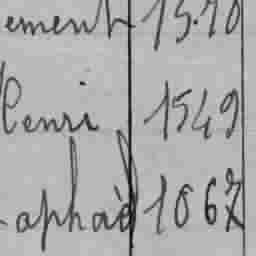 ement 1570
Henri 1549
aphaël 1067